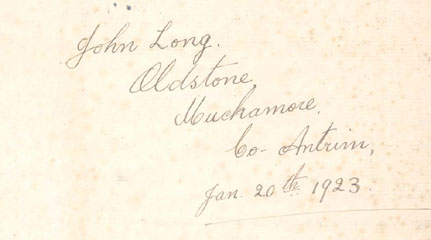 John Long.
Oldstone
Muckamore,
Co- Antrim,
Jan. 20th 1923.